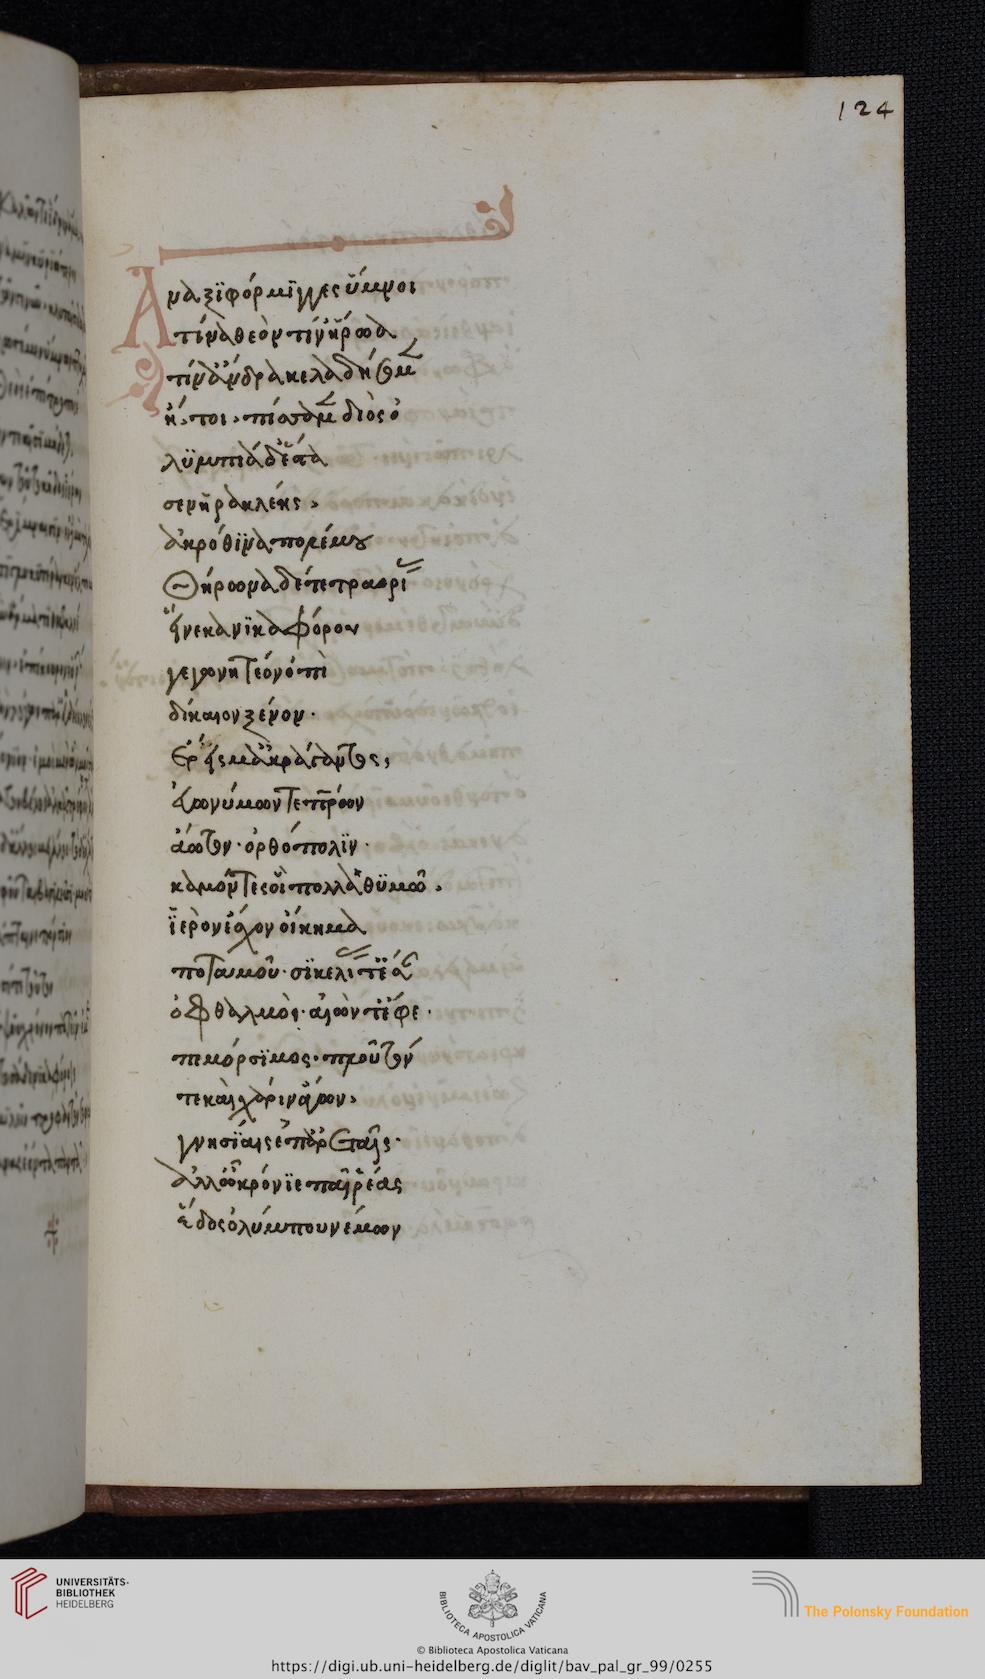 124
Ἀναξιφόρμιγγες ὕμνοι
τίνα θεὸν τίν ἥρωα
τίνα ἄνδρα κελαδήσομεν
ἤ τοι πίσα μὲν διὸς ὀ
λυμπιάδα ἔστα
σεν ἡρακλέης
ἀκρόθινα πολέμου
Θήρωνα δὲ τετραορί
ἕνεκα νικαφόρου
γεγωνητέον ὀπὶ
δίκαιον ξένον
Ἔρεισμα ἀκράγαντος
εὐωνύμων τε πατέρων
ἄωτον ὀρθόπολιν
καμόντες οἳ πολλὰ θυμῷ
ἱερὸν ἔσχον οἴκημα
ποταμοῦ σικελίας τε ἔσαν
ὀφθαλμὸι αἰὼν τε ἔφε
πε μόρσιμος πλοῦτόν
τε καὶ χάριν ἄγων
γνησίαις ἐπ ἀρεταῖς
ἀλλ ὦ κρόνιε παῖ ῥέας
ἕδος ὀλύμπου νέμων
UNIVERSITÄTS-
BIBLIOTHEK
HEIDELBERG
BIBLIOTECA APOSTOLICA VATICANA
The Polonsky Foundation
© Biblioteca Apostolica Vaticana
https://digi.ub.uni-heidelberg.de/diglit/bav_pal_gr_99/0255